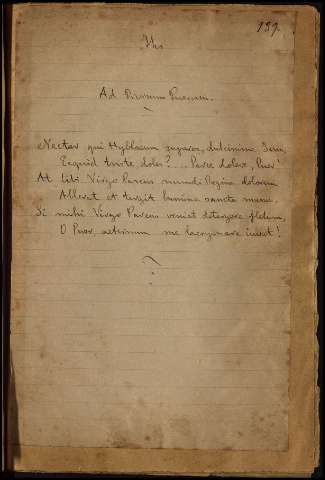 139.
Jhs
Ad Divinum Puerum.
Nectar qui Hyblaeum superas, dulcissime Jesu,
Ecquid triste doles? ... Parce dolere, Puer!
At tibi Virgo Parens mundi Regina dolorem
Allevat et tergit lumina sancta manu.
Si mihi Virgo Parens veniet detergere fletum,
O Puer, aeternum me lacrymare iuvet!